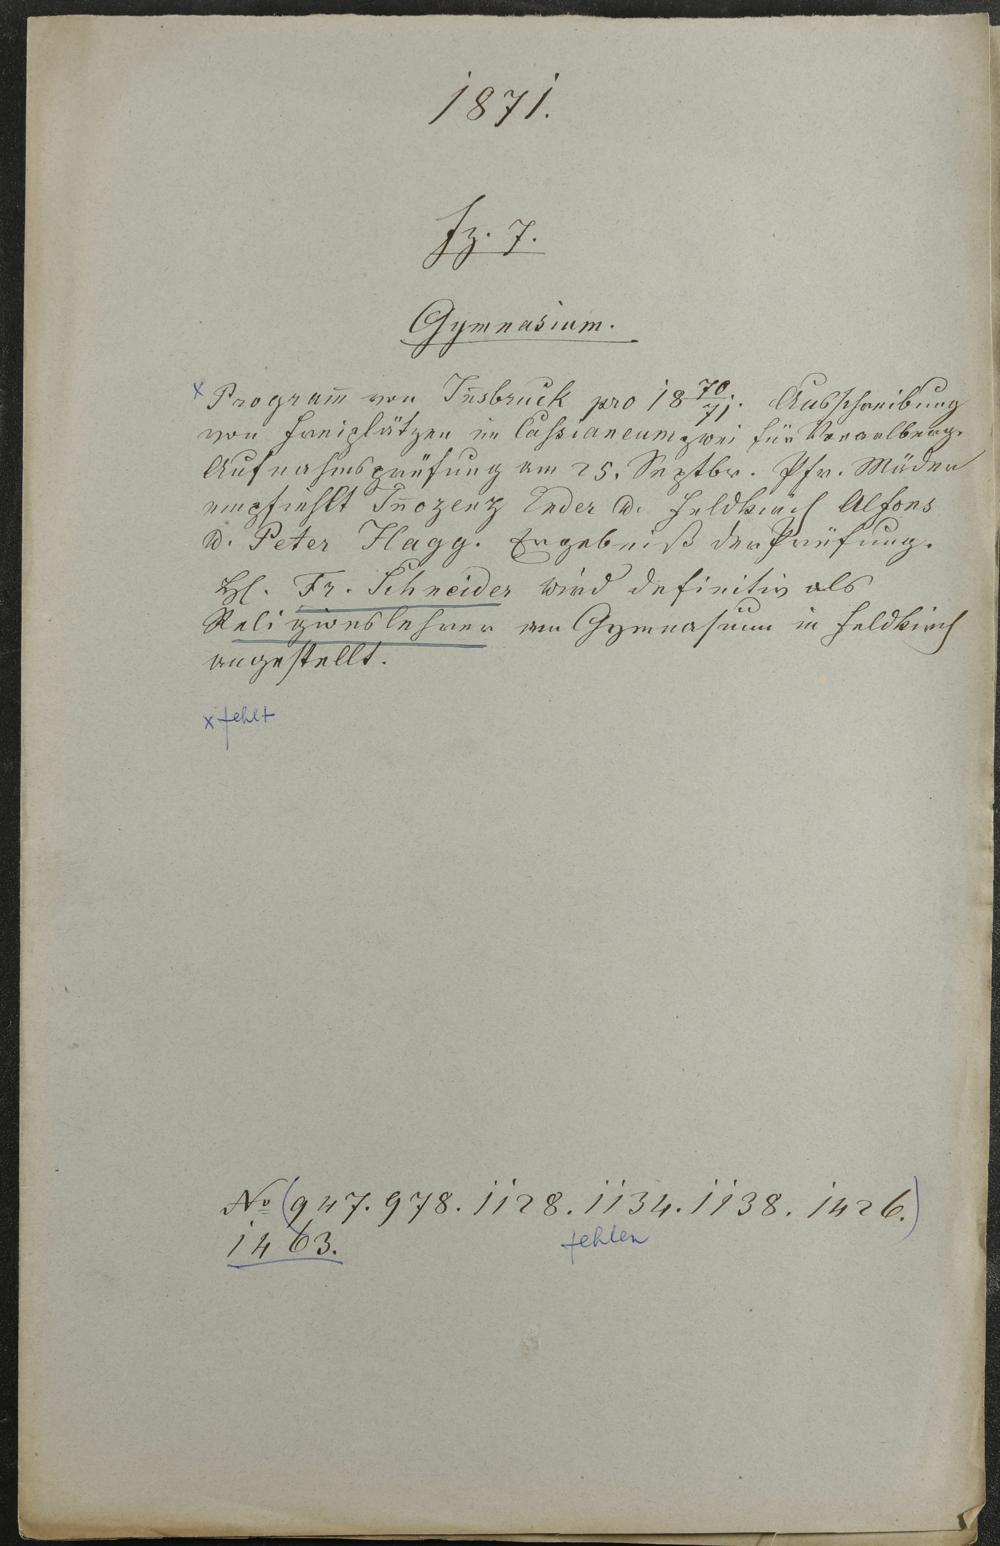 1871.
Fz. 7.
Gymnasium.
x Program̅ von In̅sbruck pro 18 70/71. Ausschreibung
von Freiplätzen im Cassianeum, zwei für Vorarlberg.
Aufnahmsprüfung am 25. Septbr. Pfr. Mäder
empfiehlt In̅ozenz Ender u. Feldkirch Alfons
u. Peter Hagg. Ergebniß der Prüfung.
Hl. Fr. Schneider wird definitiv als
Religionslehrer am Gymnasium in Feldkirch
angestellt.
x fehlt
No (947. 978. 1128. 1134. 1138. 1426.)
1463.
fehlen